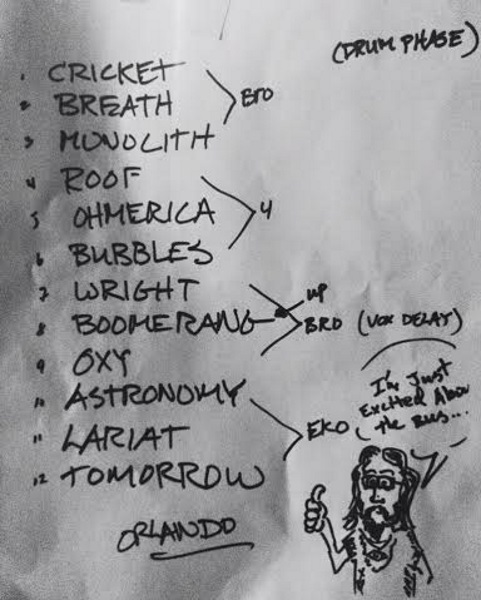 (DRUM PHASE)
1 CRICKET
2 BREATH
BRO
3 MONOLITH
4 ROOF
5 OHMERICA
4
6 BUBBLES
7 WRIGHT
UP
8 BOOMERANG
BRO (VOX DELAY)
9 OXY
10 ASTRONOMY
11 LARIAT
EKO
12 TOMORROW
ORLANDO
I'm Just
Excited About
the Bus...